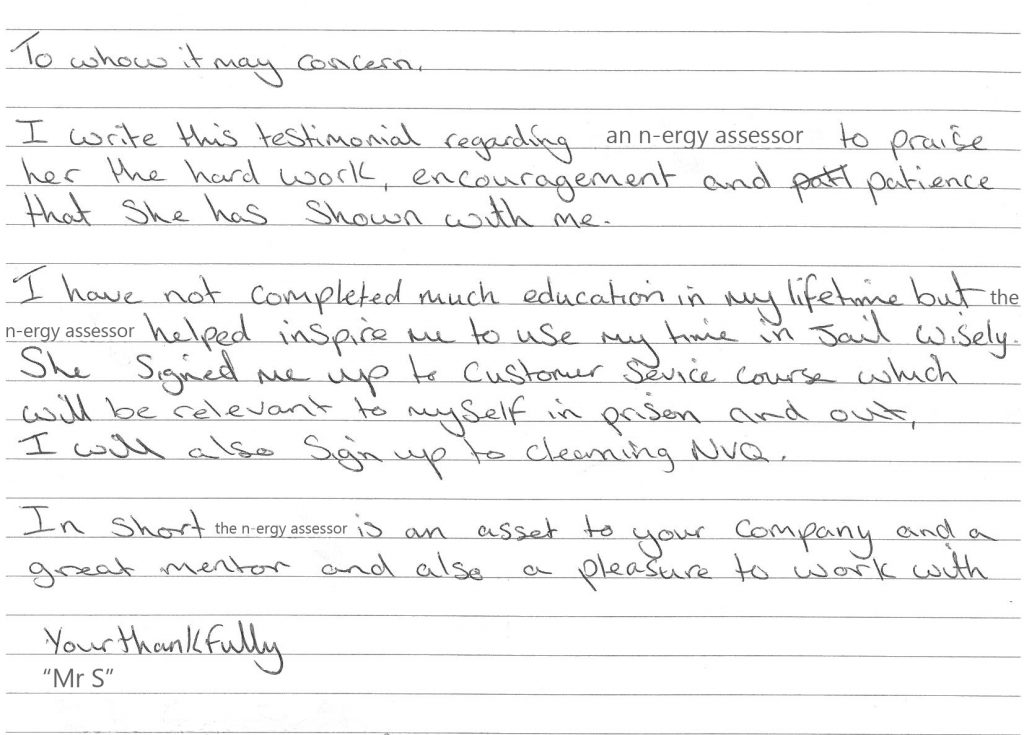 To whow it may concern.
I write this testimonial regarding an n-ergy assessor to praise
her the hard work, encouragement and patt patience
that She has Shown with me.
I have not completed much education in my lifetime but the
n-ergy assessor helped inspire me to use my time in Jail wisely.
She Signed me up to Customer Sevice course which
will be relevant to myself in prison and out,
I will also Sign up to cleaning NVQ.
In Short the n-ergy assessor is an asset to your company and a
great mentor and also a pleasure to work with
Your thankfully
“Mr S”